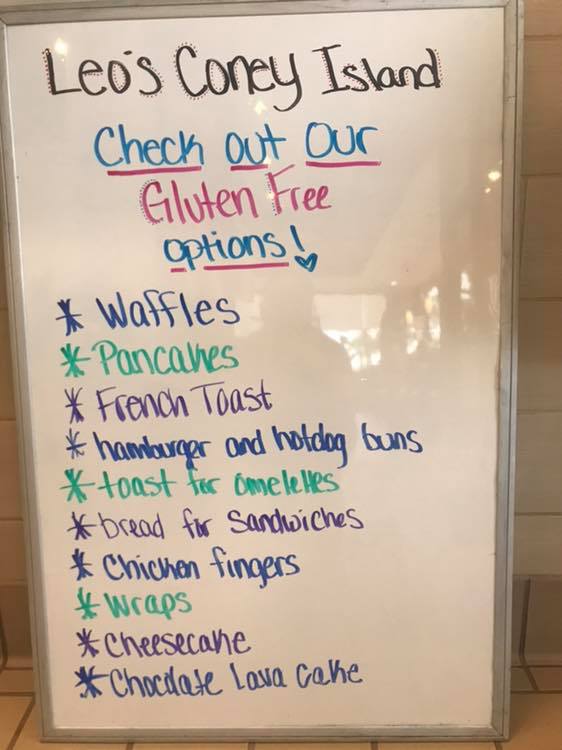 Leo's Coney Island
Check out Our
Gluten Free
options!
* Waffles
* Pancakes
* French Toast
* hamburger and hotdog buns
* toast for omelettes
* bread for Sandwiches
* Chicken fingers
* Wraps
* Cheesecake
* Chocolate Lava Cake